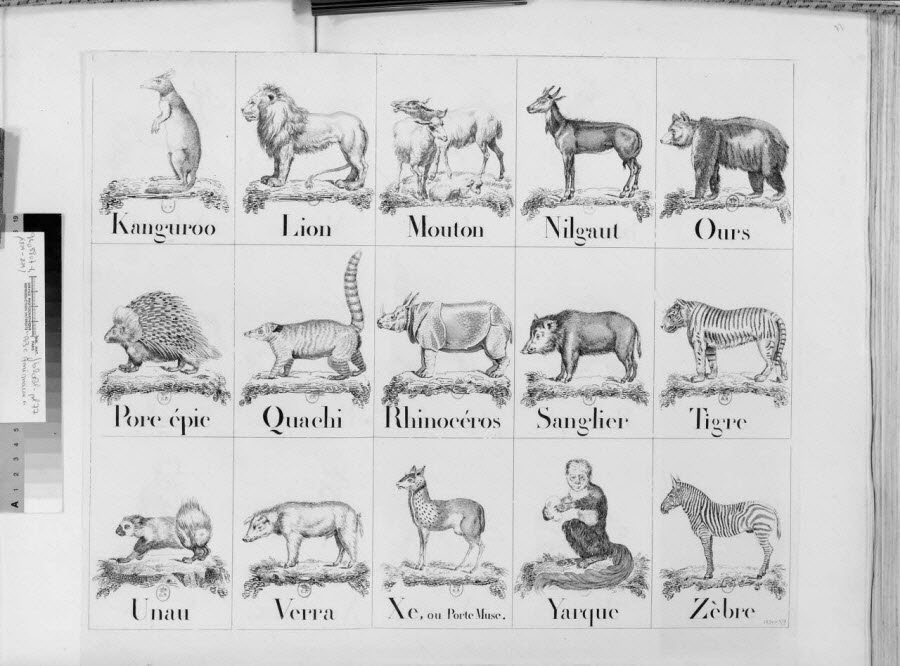 Kanguroo
Lion
Mouton
Nilgaut
Ours
Porc épic
Quachi
Rhinocéros
Sanglier
Tigre
Unau
Verra
Xe, ou Porte Muse.
Yarque
Zèbre